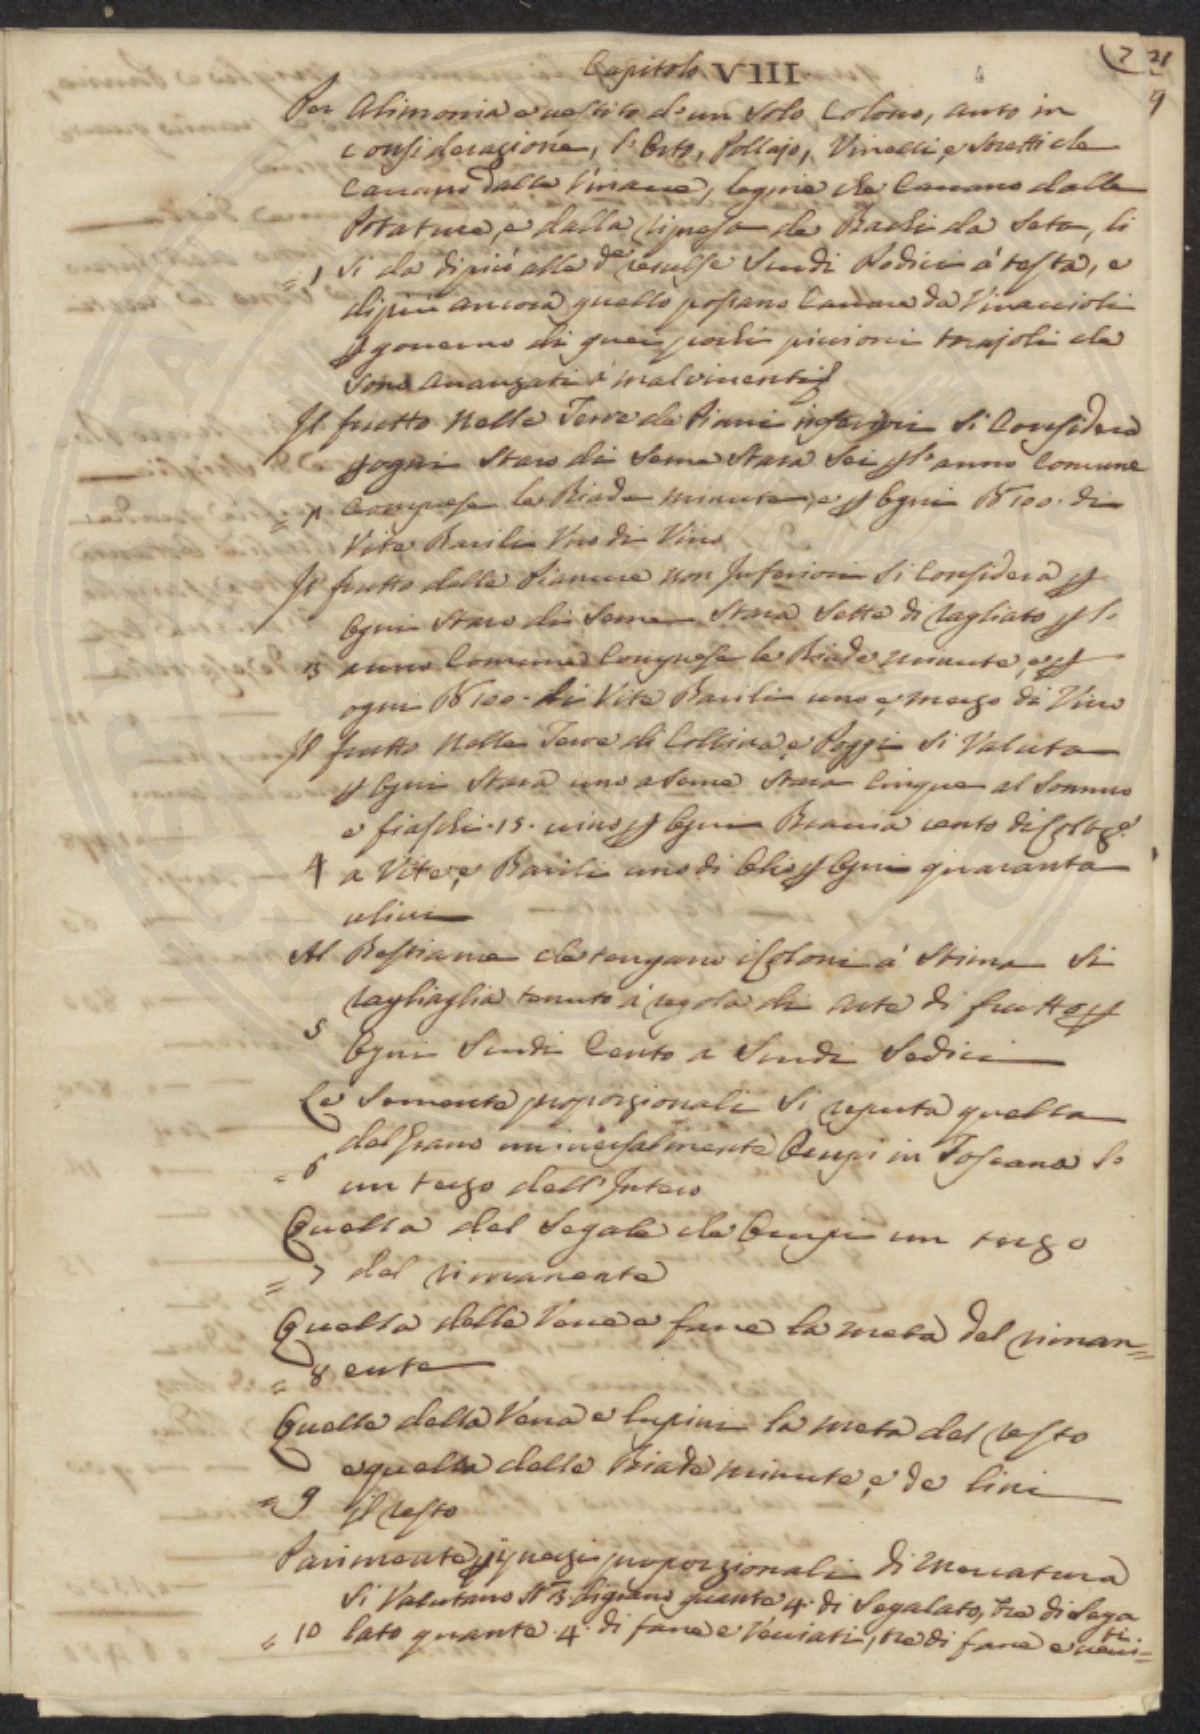 7 21
9
Capitolo VIII
Per Alimonia e vestito d'un solo Colono, auto in
considerazione, l'Orto, Pollajo, Vinelli, e Stretti che
Cavano dalle Vinacce, legnie che Cavano dalle
Potature, e dalla ripresa de Bachi da Seta, li
= 1 si da di più alle de resulse Scudi Dodici a testa, e
di più ancora quello possano Cavare da Vinaccioli
p governo di quei pochi piccioni torrajoli che
sono avanzati a malviventi
Il frutto nelle Terre de Piani inferiori si Considera
p ogni Staro di Seme Stara Sei p l'anno Comune
= 2 Comprese le Biade minute, e p Ogni Br 100. di
Vite Barili Uno di Vino
Il frutto delle Pianure non Inferiori si Considera p
Ogni Staro di Seme Stara Sette di vagliato p l'
3 anno Comune Comprese le Biade minute, e p
ogni Br 100. di Vite Barili uno e mezzo di Vino
Il frutto nelle Terre di Collina, e Poggi si Valuta
p Ogni Stara uno a Seme Stara Cinque al Sommo
e fiaschi. 15. vino p Ogni Braccia cento di
4 a Vite, e Barili uno di Olio p Ogni quaranta
ulivi
Al Bestiame che tengano i Coloni a Stima si
ragliaglia tenuto a regola di arte di frutto p
5 Ogni Scudi Cento a Scudi Sedici
Le Semente proporzionali si reputa quella
del Grano universalmente Occupi in Toscana
= 6 un terzo dell'Intero
Quella del Segale che Occupi un terzo
= 7 del rimanente
Quella delle Vecce e fave la metà del riman=
= 8 ente
Quelle della Vena e lupini la metà del resto
e quella delle Biade minute, e de lini
= 9 il resto
Parimente p i prezzi proporzionali di Mercatura
si Valutano St 3. di grano quante 4. di Segalato, tre di Sega
= 10 lato quante 4. di fave e Vecciati, tre di fave e vecci=
ti